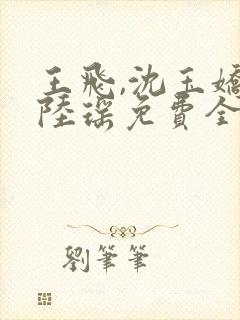 王飛,沈玉嬌
陸瑤免費全
劉筆筆